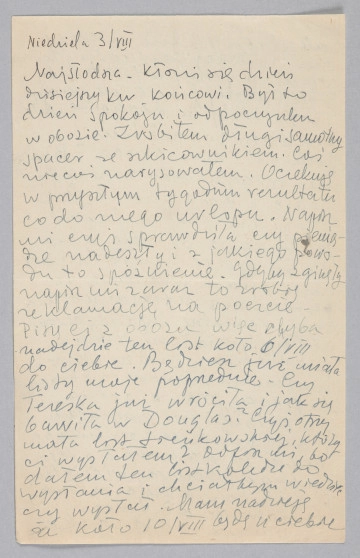 Niedziela 3/VIII
Najsłodsza - Kłoni się dzień
dzisiejszy ku końcowi. Był to
dzień spokoju i odpoczynku
w obozie. Zrobiłem drugi samotny
spacer ze szkicownikiem. Coś
niecoś narysowałem. Oczekuję
w przyszłym tygodniu rezultatu
co do mego urlopu. Napisz
mi czyś sprawdziła czy pienią-
dze nadeszły i z jakiego powo-
du to spóźnienie. Gdyby zginęły
napisz mi zaraz to zrobię
reklamację na poczcie.
Piszę z obozu więc chyba
nadejdzie ten list koło 6/VIII
do ciebie. Będziesz już miała
listy moje poprzednie. Czy
Tereska już wróciła i jak się
bawiła w Douglas? Czyś otrzy
mała list który
ci wysłałem? bo
dałem ten list koledze do
wysłania i chciałbym wiedzieć
czy wysłał. Mam nadzieję
że koło 10/VIII będę u ciebie